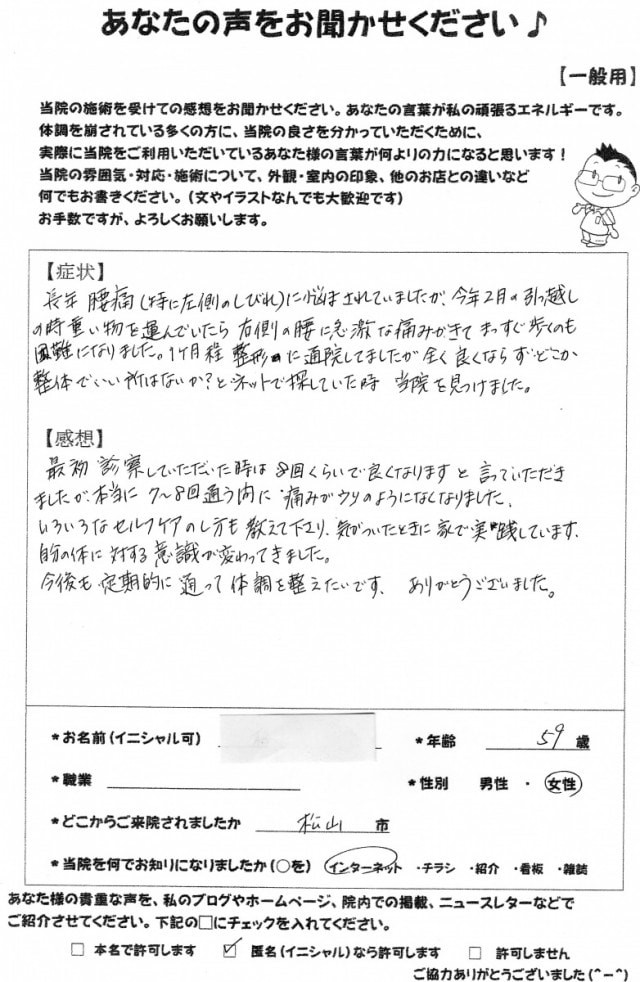 あなたの声をお聞かせください♪
【一般用】
当院の施術を受けての感想をお聞かせください。あなたの言葉が私の頑張るエネルギーです。
体調を崩されている多くの方に、当院の良さを分かっていただくために、
実際に当院をご利用いただいているあなた様の言葉が何よりの力になると思います！
当院の雰囲気・対応・施術について、外観・室内の印象、他のお店との違いなど
何でもお書きください。（文やイラストなんでも大歓迎です）
お手数ですが、よろしくお願いします。
【症状】
長年 腰痛（特に左側のしびれ）に悩まされていましたが、今年2月の引っ越し
の時重い物を運んでいたら 右側の腰に急激な痛みがきて まっすぐ歩くのも
困難になりました。1ヶ月程 整形に通院してましたが全く良くならず、どこか
整体でいい所はないか？とネットで探していた時 当院を見つけました。
【感想】
最初 診察していただいた時は 8回くらいで良くなりますと言っていただき
ましたが、本当に 7〜8回通う内に 痛みがウソのようになくなりました。
いろいろなセルフケアのし方も 教えて下さり、気がついたときに 家で実践しています。
自分の体に対する意識が変わってきました。
今後も 定期的に 通って 体調を整えたいです。 ありがとうございました。
*お名前（イニシャル可） *年齢 59 歳
*職業 *性別 男性 ・ 女性
*どこからご来院されましたか 松山 市
*当院を何でお知りになりましたか（○を） インターネット ・チラシ ・紹介 ・看板 ・雑誌
あなた様の貴重な声を、私のブログやホームページ、院内での掲載、ニュースレターなどで
ご紹介させてください。下記の□にチェックを入れてください。
□ 本名で許可します ☑ 匿名（イニシャル）なら許可します □ 許可しません
ご協力ありがとうございました（^－^）